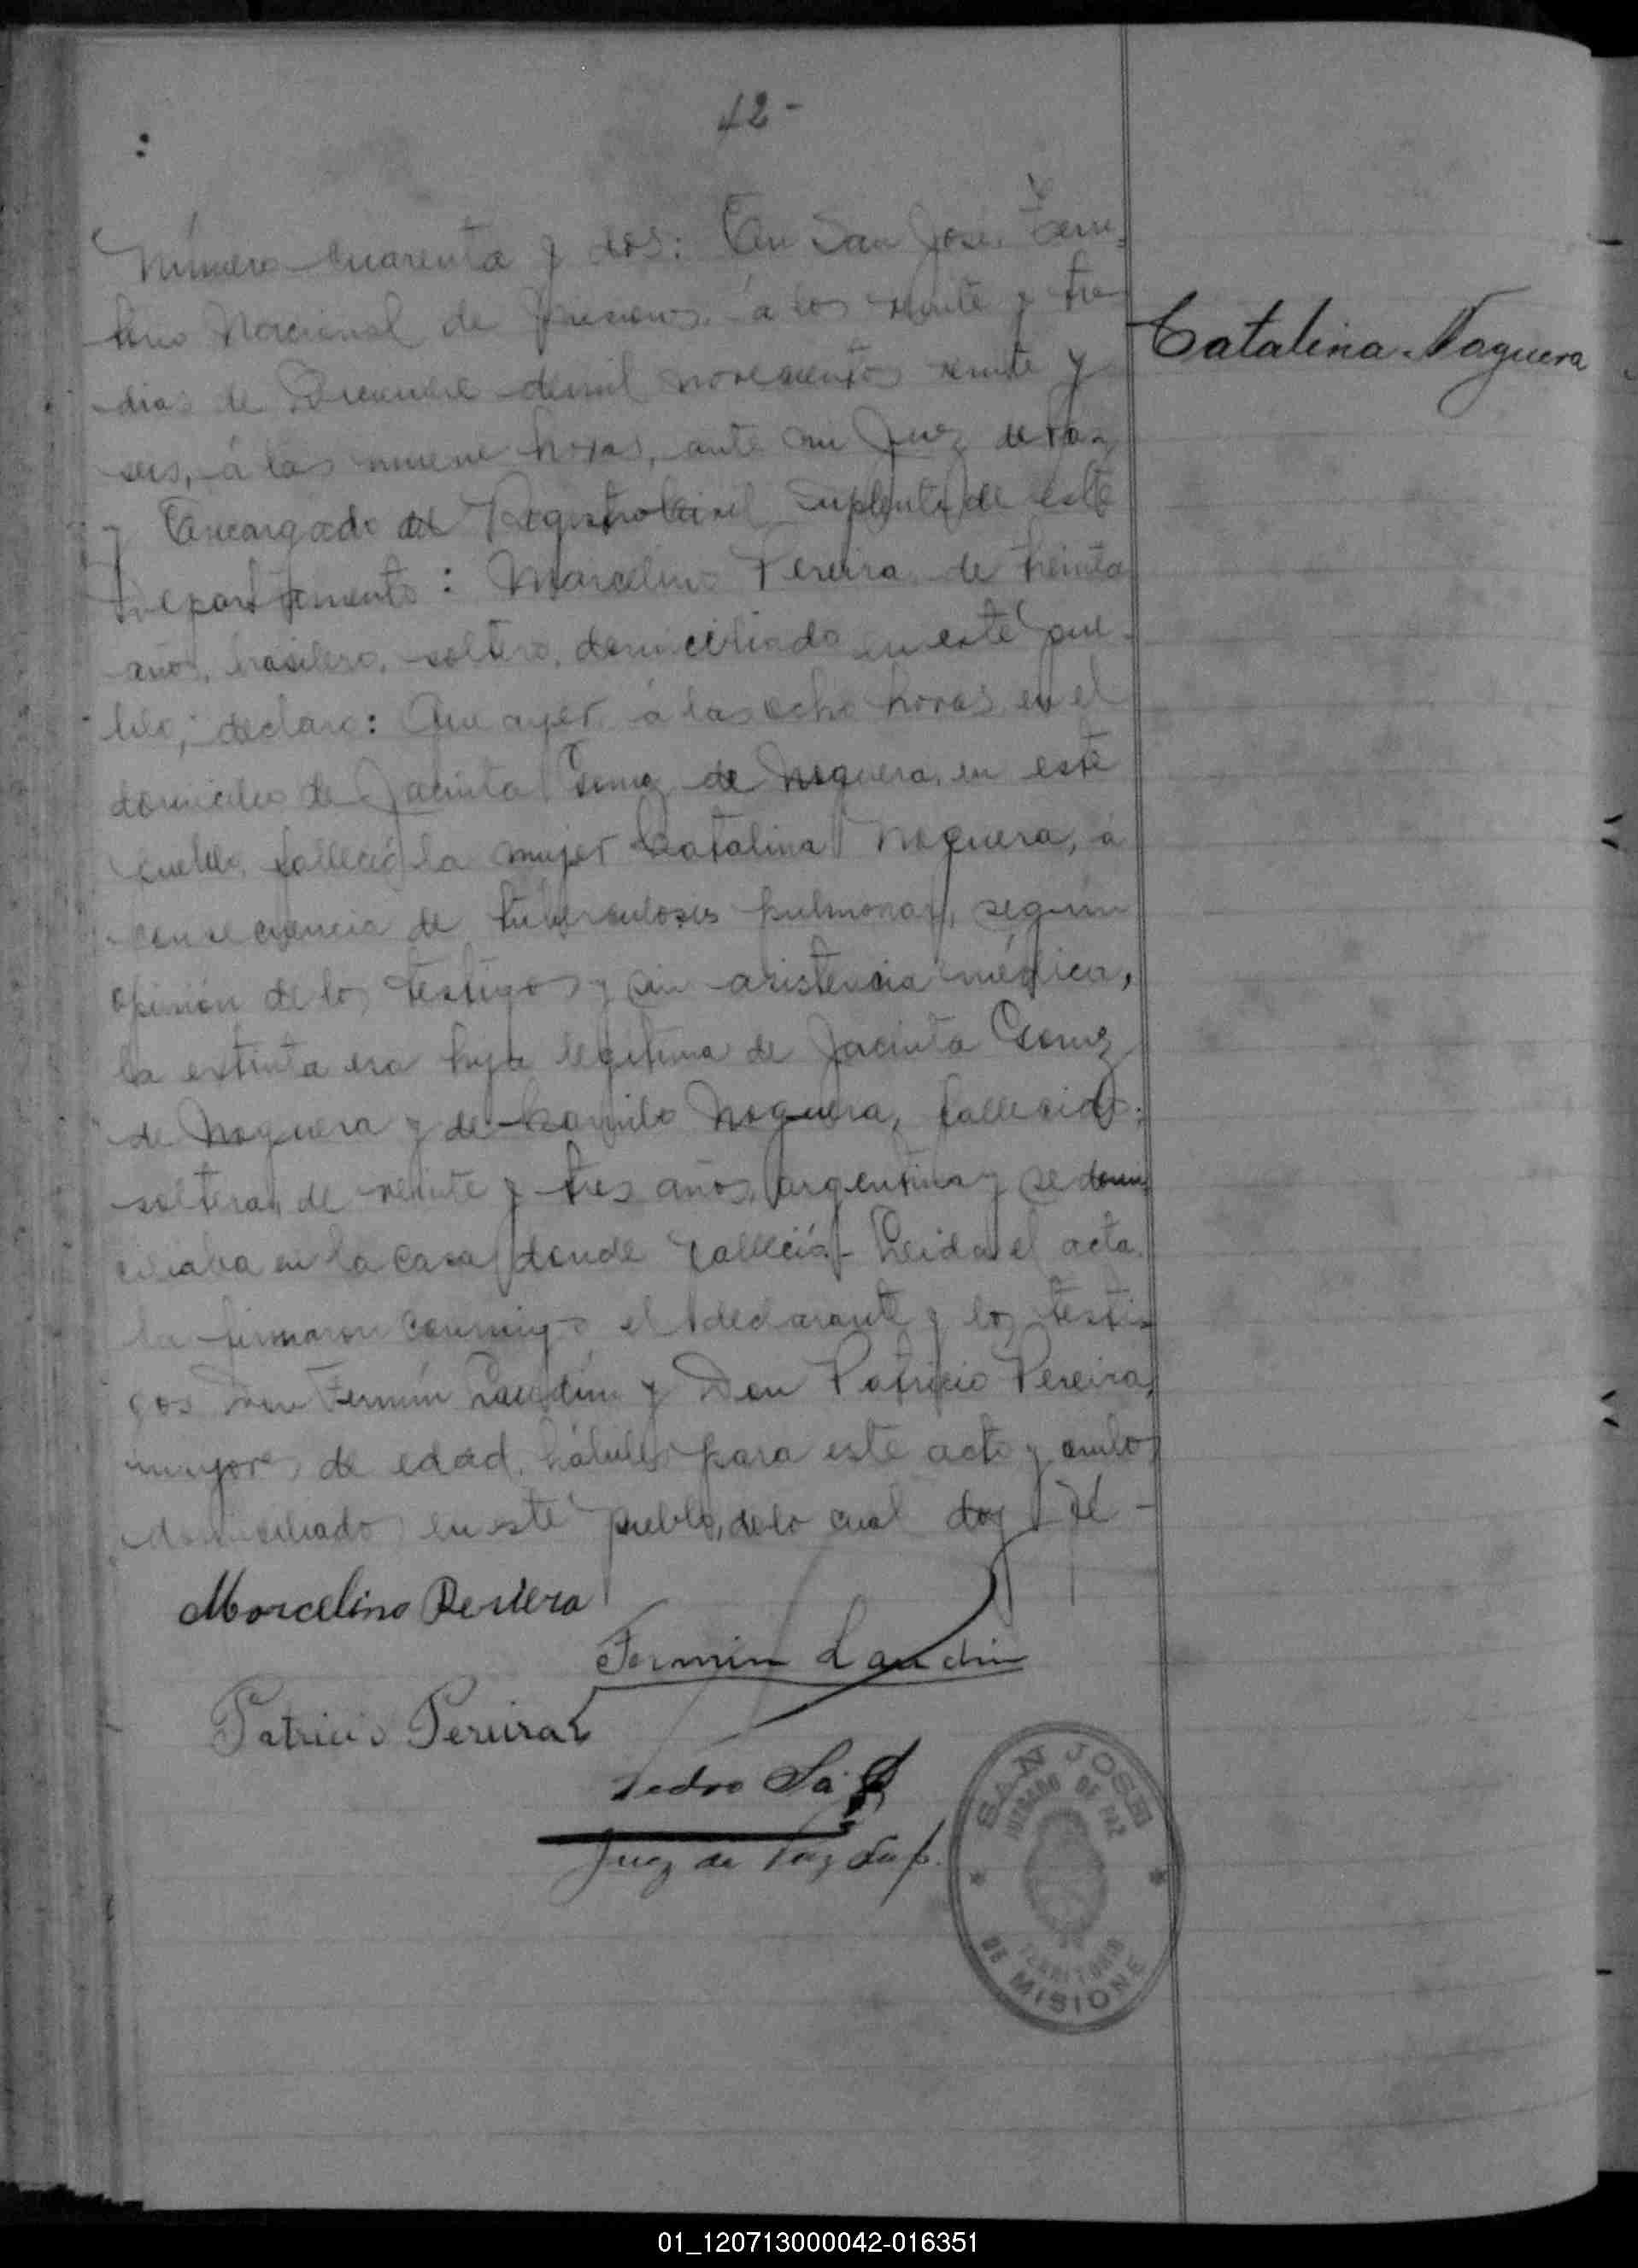 42-
Número cuarenta y dos: En San José, Terri-
torio Nacional de Misiones, á los veinte y tres
dias de Diciembre de mil novecientos veinte y
seis, á las nueve horas, ante mi Juez de Paz
y Encargado del Registro Civil Suplente de este
Departamento: Marcelino Pereira, de treinta
años, brasilero, soltero, domiciliado en este pue-
blo, declaro: Que ayer á las ocho horas, en el
domicilio de Jacinta Gomez de Noguera, en este
pueblo, falleció la mujer Catalina Noguera, á
consecuencia de tuberculosis pulmonar, según
opinión de los testigos y sin asistencia médica,
la extinta era hija legitima de Jacinta Gomez
de Noguera y de Camilo Noguera, fallecido;
soltera, de veinte y tres años, argentina y se domi-
ciliaba en la casa donde falleció - Leida el acta
la firmaron conmigo el declarante y los testi-
gos Don Fermín Landin y Don Patricio Pereira,
mayores de edad, hábiles para este acto y ambos
domiciliados en este pueblo, de lo cual doy fé -
Catalina Noguera
Marcelino Periera
Fermin Landin
Patricio Pereira
Pedro
Juez de Paz Sup.
SAN JOSE
JUZGADO DE PAZ
TERRITORIO
DE MISIONE
01_120713000042-016351